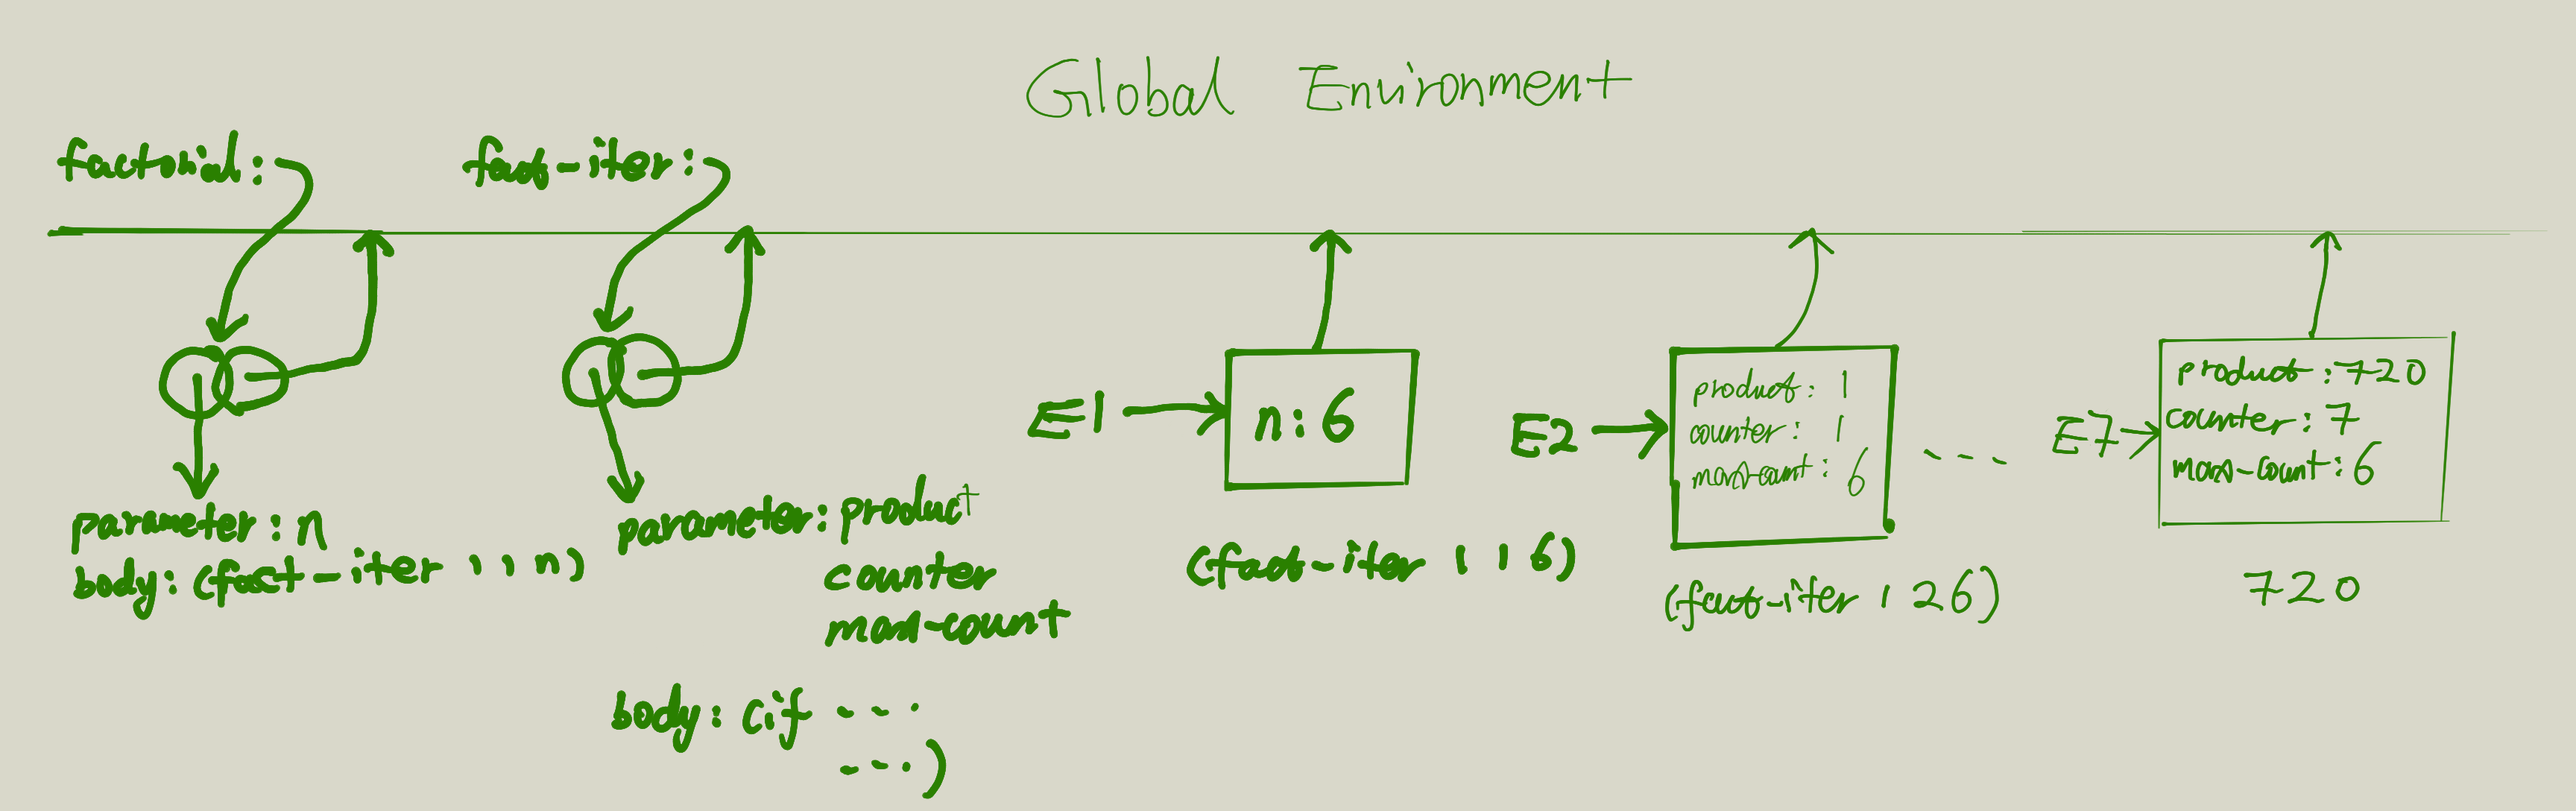 Global Environment
factorial:
fact-iter:
parameter: n
body: (fact-iter 1 1 n)
parameter: product
counter
max-count
body: (if ...
...)
E1
n: 6
(fact-iter 1 1 6)
E2
product: 1
counter: 1
max-count: 6
(fact-iter 1 2 6)
...
E7
product: 720
counter: 7
max-count: 6
720